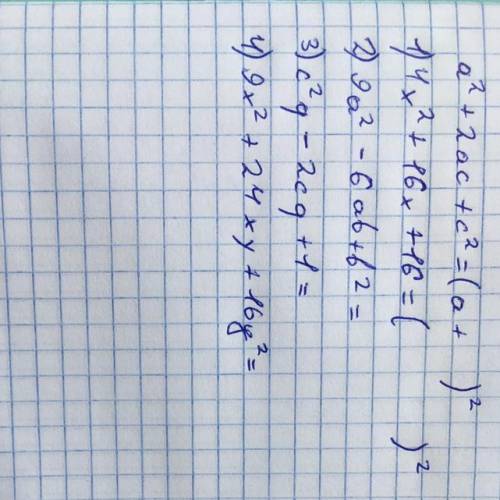 a² + 2ac + c² = (a +    )²
1) 4x² + 16x + 16 = (    )²
2) 9a² - 6ab + b² =
3) c²q - 2cq + 1 =
4) 9x² + 24xy + 16y² =